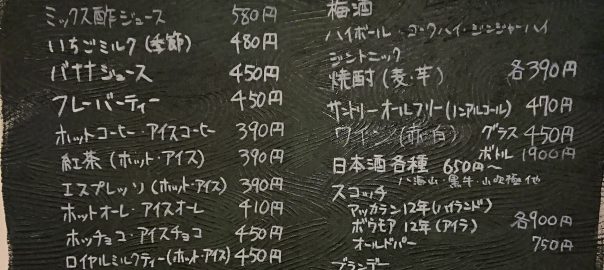 ミックス酢ジュース 580円
いちごミルク(季節) 480円
バナナジュース 450円
フレーバーティー 450円
ホットコーヒー・アイスコーヒー 390円
紅茶(ホット・アイス) 390円
エスプレッソ(ホット・アイス) 390円
ホットオーレ・アイスオーレ 410円
ホッチョコ・アイスチョコ 450円
ロイヤルミルクティー(ホット・アイス) 450円
梅酒
ハイボール・コークハイ・ジンジャーハイ
ジントニック
焼酎(麦・芋) 各390円
サントリーオールフリー(ノンアルコール) 470円
ワイン(赤・白) グラス 450円
ボトル 1900円
日本酒各種 650円〜
八海山・黒牛・山吹極 他
スコッチ
マッカラン12年(ハイランド)
ボウモア12年(アイラ) 各900円
オールドパー 750円
ブランデー